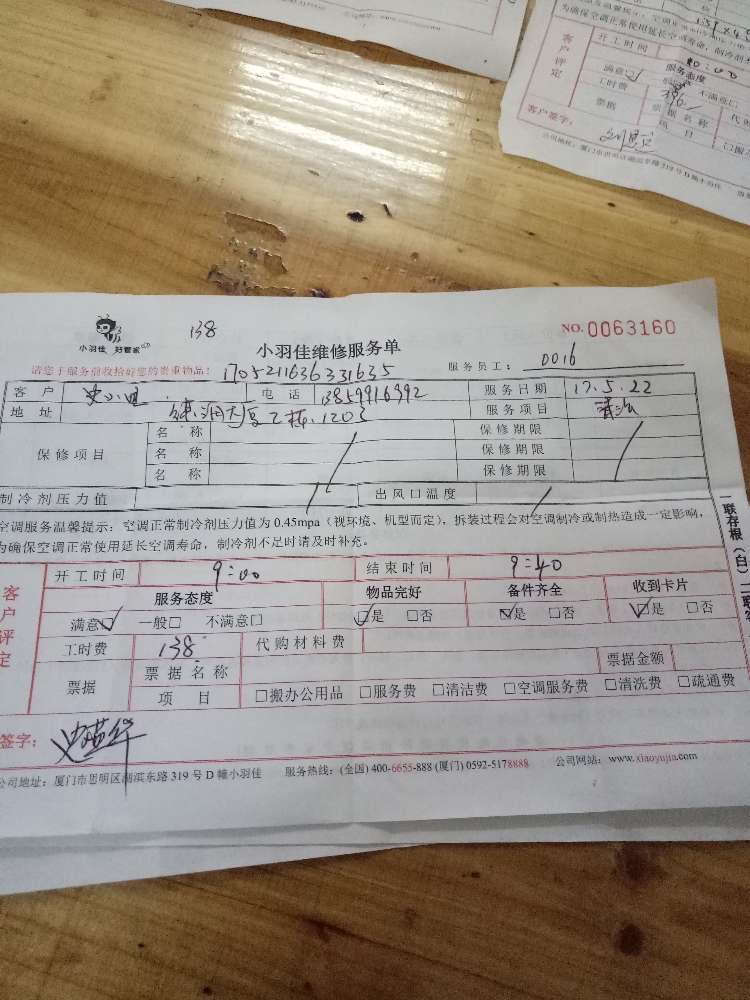 为确保空调正常使用延长空调寿命，制冷剂
客户评定
开工时间 10:00
服务态度
满意☑ 不满意□
工时费 396
票据 票据名称 代
项 目 □搬
客户签字：
公司地址：厦门市思明区湖滨东路319号D幢小羽佳
138
小羽佳 好管家
小羽佳维修服务单
NO.0063160
请您于服务前收拾好您的贵重物品！
1705211636331635
服务员工：0016
客户 电话 服务日期 17.5.22
地址 大厦乙栋.1203 服务项目 清洗
保修项目 名 称 保修期限
名 称 保修期限
名 称 保修期限
制冷剂压力值 出风口温度
空调服务温馨提示：空调正常制冷剂压力值为0.45mpa（视环境、机型而定），拆装过程会对空调制冷或制热造成一定影响，
为确保空调正常使用延长空调寿命，制冷剂不足时请及时补充。
一联存根（白）二联客
客户评定
开工时间 9:00 结束时间 9:40
服务态度 物品完好 备件齐全 收到卡片
满意☑ 一般□ 不满意□ ☑是 □否 ☑是 □否 ☑是 □否
工时费 138 代购材料费
票据 票据名称 票据金额
项 目 □搬办公用品 □服务费 □清洁费 □空调服务费 □清洗费 □疏通费
签字：
公司地址：厦门市思明区湖滨东路319号D幢小羽佳 服务热线：(全国) 400-6655-888 (厦门) 0592-5178888 公司网站：www.xiaoyujia.com